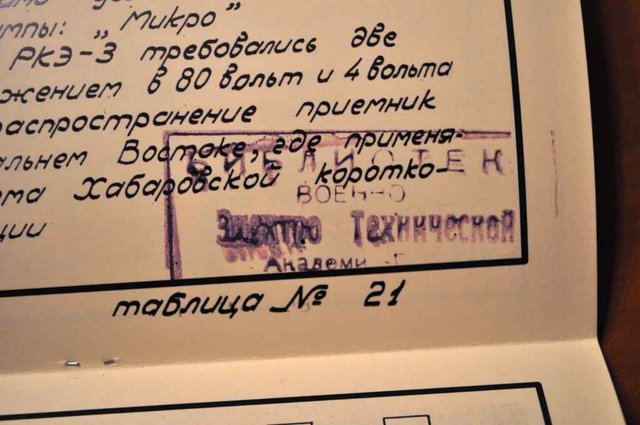 лампы: „Микро”
РКЭ-3 требовались две
жением в 80 вольт и 4 вольта
распространение приемник
альнем Востоке, где применя-
ема Хабаровской коротко-
ции
БИБЛИОТЕК
ВОЕННО
Электро Технической
Академи
таблица № 21